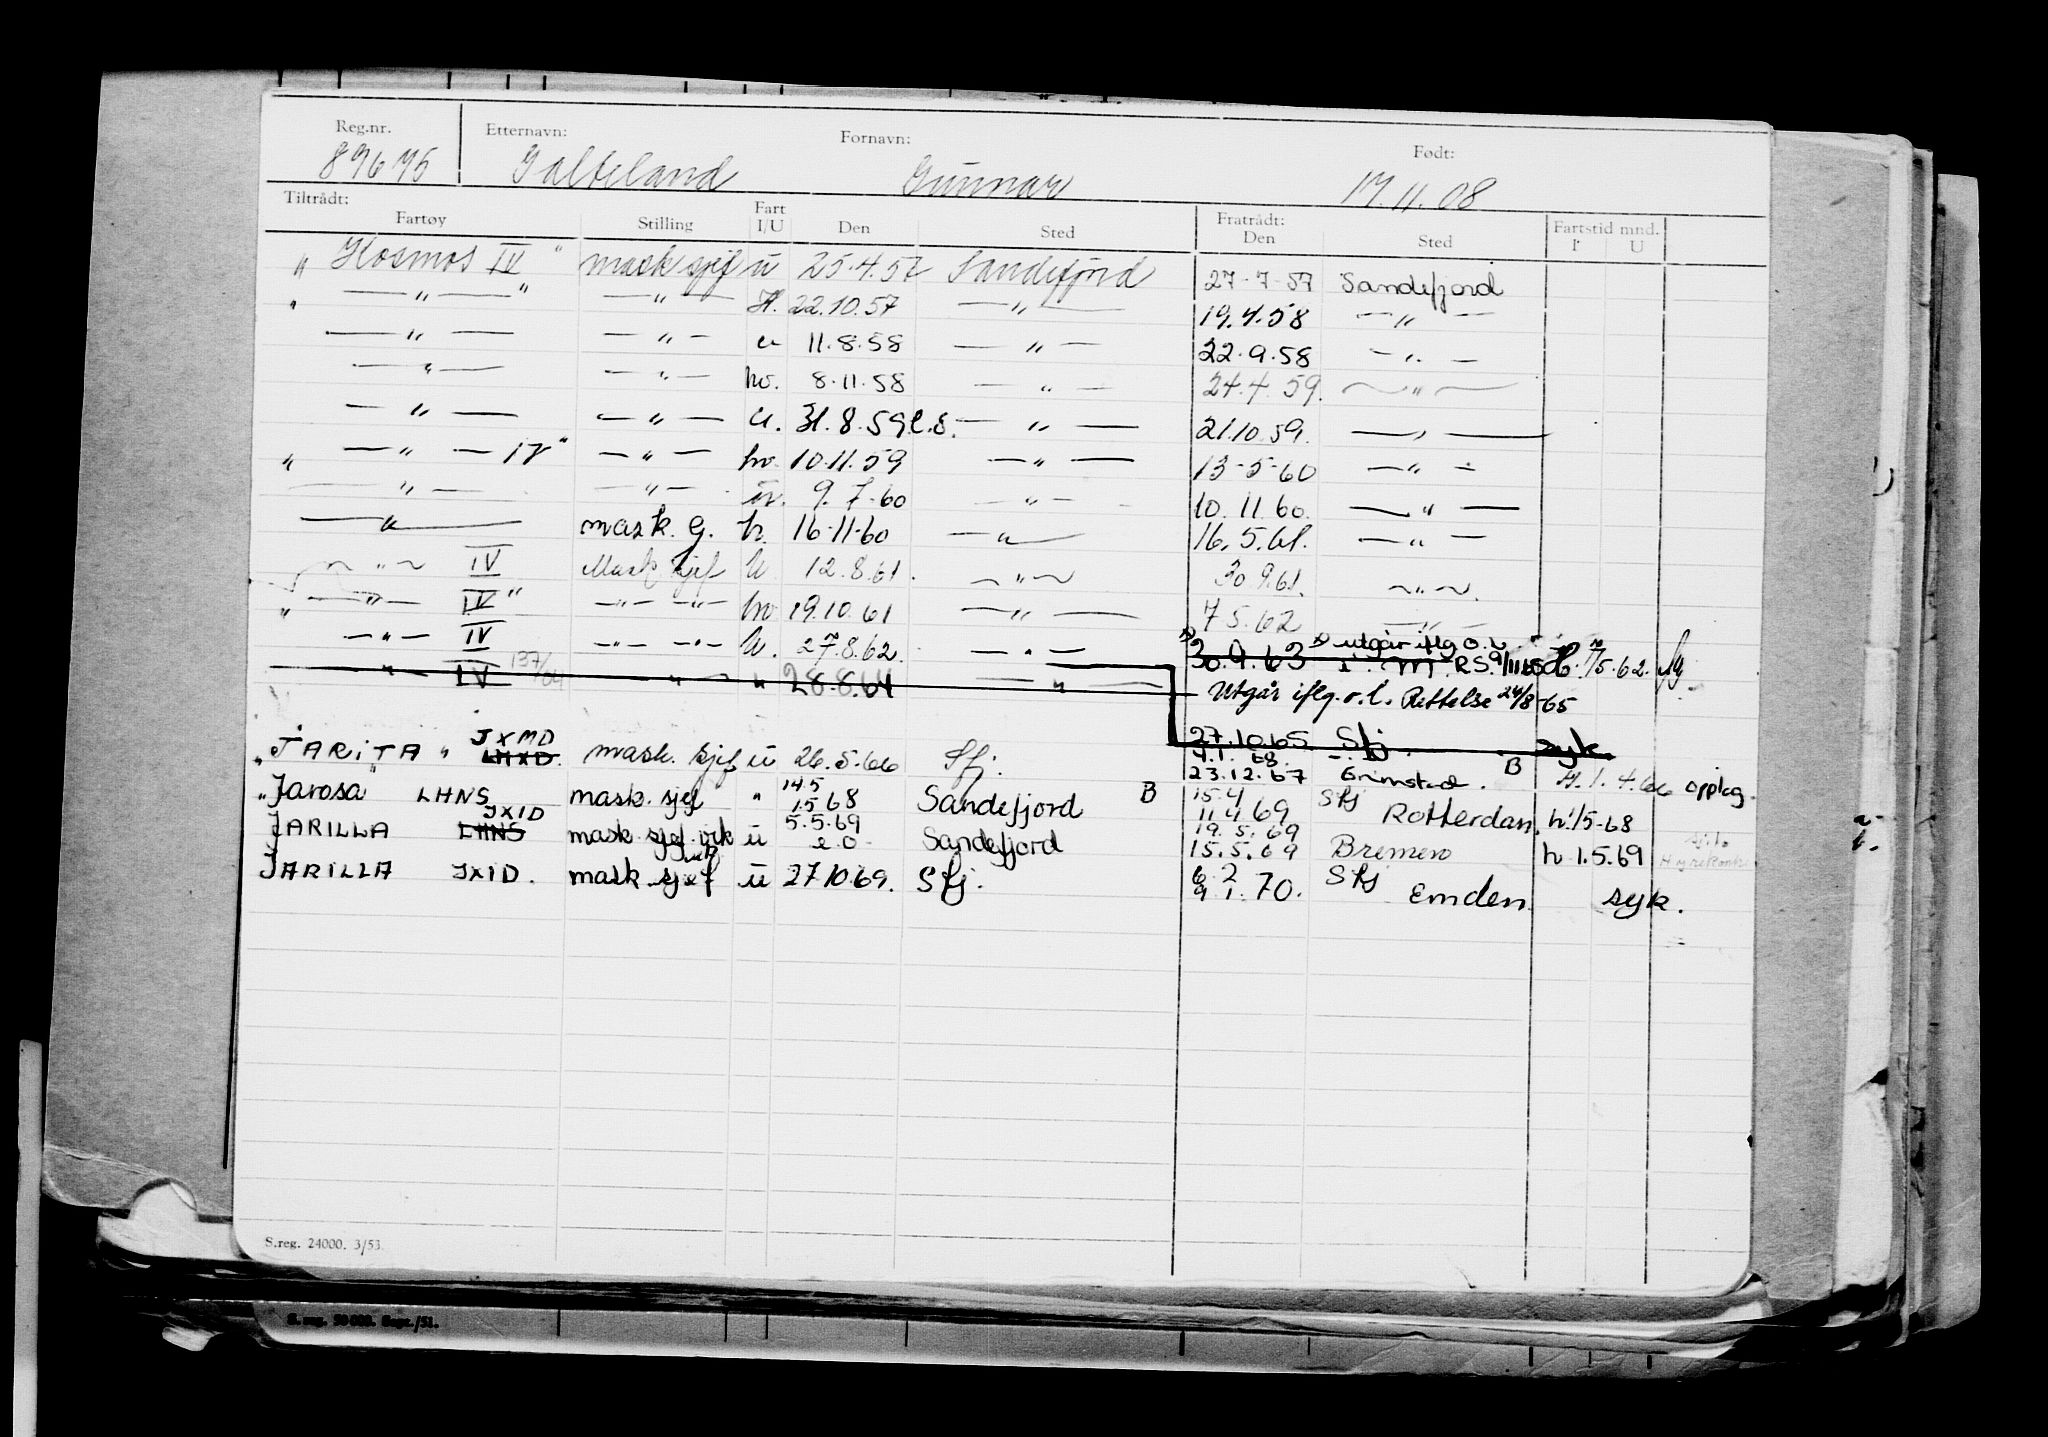 Reg.nr. Etternavn: Fornavn: Født:
89675 Galteland Gunnar 17.11.08
Tiltrådt: Fratrådt:
Fartøy Stilling Fart I/U Den Sted Den Sted Fartstid mnd. I U
" Kosmos IV " mask sjef u 25.4.57 Sandefjord 27-7-57 Sandefjord
" — " — " — " — H. 22.10.57 — " — 19.4.58 — " —
— " — — " — u 11.8.58 — " — 22.9.58 — " —
— " — — " — hv. 8.11.58 — " — 24.4.59. — " —
— " — — " — u. 31.8.59 e.o. — " — 21.10.59. — " —
" — " — IV " — " — hv. 10.11.59 — " — 13-5-60 — " —
— " — — " — 9.7-60 — " — 10.11.60. — " —
— " — mask. G. hv. 16-11-60 — " — 16.5.61. — " —
— " — IV Mask sjef U. 12.8.61. — " — 30.9.61. — " —
" — " — IV " — " — " — hv 19.10.61 — " — 7.5.62 — " —
— " — IV — " — — " — U. 27.8.62. — " — 30.9.63 x) utgår iflg o.l. RS 9/11 65 7/5.62.
" IV 137/64 — " — " 28.8.64 — " — Utgår iflg. o.l. Rettelse 24/8-65
27.10.65 Sfj. syk.
" JARITA " JXMD LMXD. mask. sjef u 26.5.66 Sfj. 4.1.68. 23.12.67 Grimstad. B H. 1.4.66 opplag.
" Jarosa " LHNS mask. sjef " 14.5 1.5 68 Sandefjord B 15.4 11.4.69 Sfj Rotterdam. h. 1/5-68
JARILLA JXID LHNS mask. sjef. vik u 5.5.69 e.o. Sandefjord 19.5.69 15.5.69 Bremen h 1.5.69
JARILLA JXID. mask. sjef u 27.10.69. Sfj. 6.2 9.1.70. Sfj Emden syk.
S.reg. 24000. 3/53.
S.reg. 50000. Sept./51.